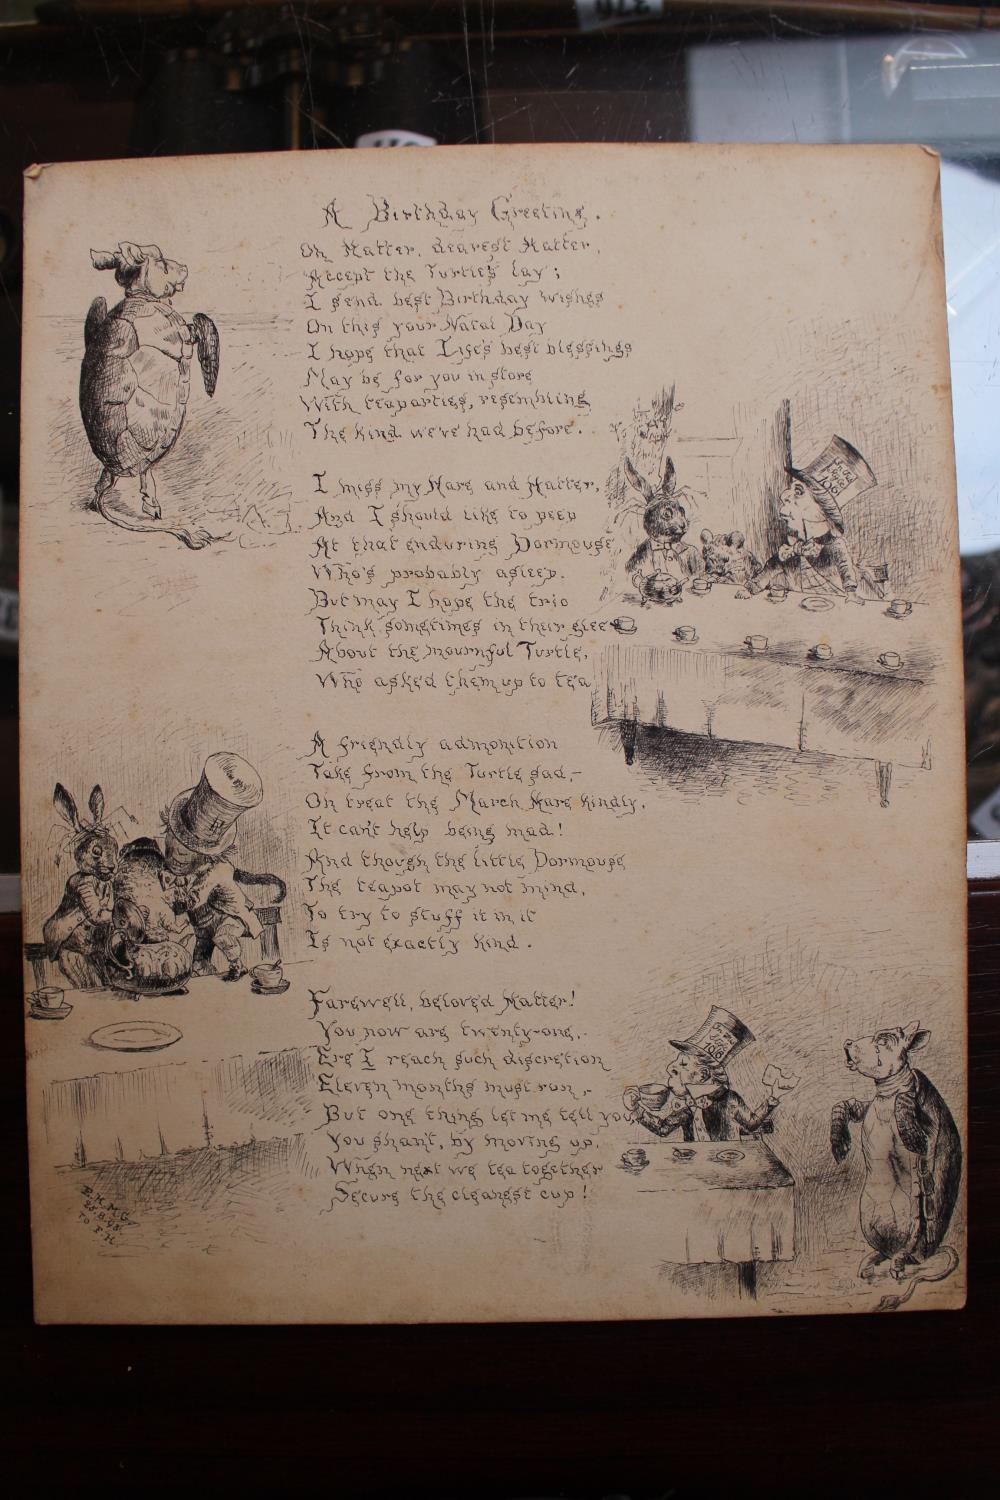 A Birthday Greeting.
Oh Hatter, dearest Hatter,
Accept the Turtle's lay;
I send best Birthday wishes
On this your Natal Day
I hope that Life's best blessings
May be for you in store
With teaparties, resembling
The kind we've had before.
I miss my Hare and Hatter,
And I should like to peep
At that enduring Dormouse,
Who's probably asleep.
But may I hope the trio
Think sometimes in their glee
About the mournful Turtle,
Who asked them up to tea
A friendly admonition
Take from the Turtle sad,-
Oh treat the March Hare kindly,
It can't help being mad!
And though the little Dormouse
The teapot may not mind,
To try to stuff it in it
Is not exactly kind.
Farewell, beloved Hatter!
You now are twenty-one,-
Ere I reach such discretion
Eleven months must run,-
But one thing let me tell you,
You shan't, by moving up,
When next we tea together
Secure the cleanest cup!
In this
Style
10/6
In this
Style
10/6
E.H.M.G.
25.8.98.
To F.H.